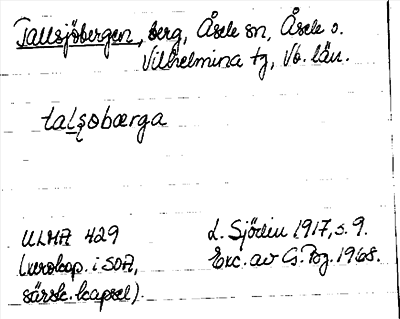 Tallsjöbergen, berg, Åsele sn, Åsele o.
Vilhelmina tg, Vb. län.
talʂobærga
ULMA 429
(urokop. i SOA,
särsk. kapsel).
L. Sjödin 1917, s. 9.
Exc. av Cs. 1968.